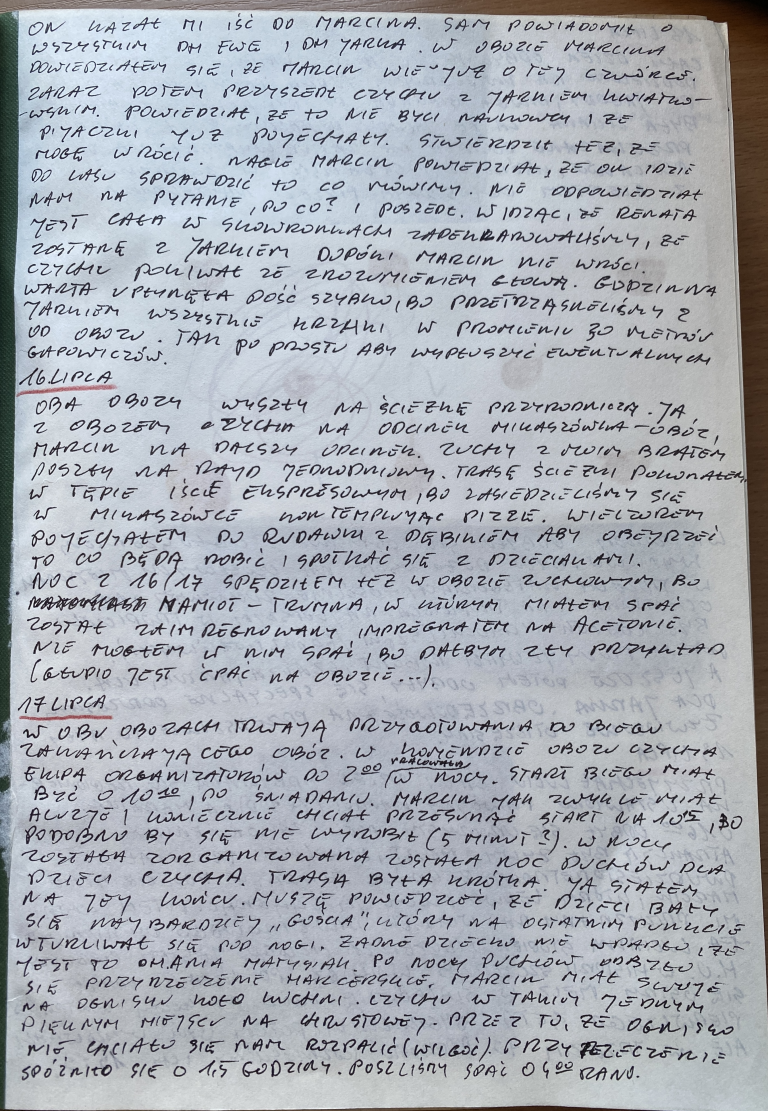 ON KAZAŁ MI IŚĆ DO MARCINA. SAM POWIADOMIŁ O
WSZYSTKIM DH EWE I DH JARKA. W OBOZIE MARCINA
DOWIEDZIAŁEM SIĘ, ŻE MARCIN WIE JUŻ O TEJ CZWÓRCE.
ZARAZ POTEM PRZYSZEDŁ CZYCHU Z JARKIEM KWIATKO-
-WSKIM. POWIEDZIAŁ, ŻE TO NIE BYLI NAUKOWCY I ŻE
PIJACZKI JUŻ POJECHAŁY. STWIERDZIŁ TEŻ, ŻE
MOGĘ WRÓCIĆ. NAGLE MARCIN POWIEDZIAŁ, ŻE ON IDZIE
DO LASU SPRAWDZIĆ TO CO MÓWIMY. NIE ODPOWIEDZIAŁ
NAM NA PYTANIE, PO CO? I POSZEDŁ. WIDZĄC, ŻE RENATA
JEST CAŁA W SKOWRONKACH ZADEKLAROWALIŚMY, ŻE
ZOSTANĘ Z JARKIEM DOPÓKI MARCIN NIE WRÓCI.
CZYCHU POKIWAŁ ZE ZROZUMIENIEM GŁOWĄ. GODZINNA
WARTA UPŁYNĘŁA DOŚĆ SZYBKO, BO PRZETRZĄSNELIŚMY Z
JARKIEM WSZYSTKIE KRZAKI W PROMIENIU 30 METRÓW
OD OBOZU. TAK PO PROSTU ABY WYPŁOSZYĆ EWENTUALNYCH
GAPOWICZÓW.
16 LIPCA
OBA OBOZY WYSZŁY NA ŚCIEŻKĘ PRZYRODNICZĄ. JA
Z OBOZEM CZYCHA NA ODCINEK MIKASZÓWKA-OBÓZ,
MARCIN NA DALSZY ODCINEK. ZUCHY Z MOIM BRATEM
POSZŁY NA RAJD JEDNODNIOWY. TRASĘ ŚCIEŻKI POKONAŁEM
W TĘPIE IŚCIE EKSPRESOWYM, BO ZASIEDZIELIŚMY SIĘ
W MIKASZÓWCE KONTEMPLUJĄC PIZZE. WIECZOREM
POJECHAŁEM DO RUDAWKI Z DĘBINIEM ABY OBEJRZEĆ
TO CO BĘDĄ ROBIĆ I SPOTKAĆ SIĘ Z DZIECIAKAMI.
NOC Z 16/17 SPĘDZIŁEM TEŻ W OBOZIE ZUCHOWYM, BO
NAMIOT-TRUMNA, W KTÓRYM MIAŁEM SPAĆ
ZOSTAŁ ZAIMREGNOWANY IMPREGNATEM NA ACETONIE.
NIE MOGŁEM W NIM SPAĆ, BO DAŁBYM ZŁY PRZYKŁAD
(GŁUPIO JEST ĆPAĆ NA OBOZIE...).
17 LIPCA
W OBU OBOZACH TRWAJĄ PRZYGOTOWANIA DO BIEGU
ZAKAŃCZAJĄCEGO OBÓZ. W KOMENDZIE OBOZU CZYCHA
EKIPA ORGANIZATORÓW DO 2⁰⁰ PRACOWAŁA W NOCY. START BIEGU MIAŁ
BYĆ O 10¹⁰, PO ŚNIADANIU. MARCIN JAK ZWYKLE MIAŁ
ALUZJE I KONIECZNIE CHCIAŁ PRZESUNĄĆ START NA 10¹⁵, BO
PODOBNO BY SIĘ NIE WYROBIŁ (5 MINUT?). W NOCY
ZOSTAŁA ZORGANIZOWANA ZOSTAŁA NOC DUCHÓW DLA
DZIECI CZYCHA. TRASA BYŁA KRÓTKA. JA STAŁEM
NA JEJ KOŃCU. MUSZĘ POWIEDZIEĆ, ŻE DZIECI BAŁY
SIĘ NAJBARDZIEJ „GOŚCIA", KTÓRY NA OSTATNIM PUNKCIE
WTURLIWAŁ SIĘ POD NOGI. ŻADNE DZIECKO NIE WPADŁO, ŻE
JEST TO DH. ANIA MATYSIAK. PO NOCY DUCHÓW ODBYŁO
SIĘ PRZYRZECZENIE HARCERSKIE. MARCIN MIAŁ SWOJE
NA OGNISKU KOŁO KUCHNI. CZYCHU W TAKIM JEDNYM
PIĘKNYM MIEJSCU NA CHRUSTOWEJ. PRZEZ TO, ŻE OGNISKO
NIE CHCIAŁO SIĘ NAM ROZPALIĆ (WILGOĆ). PRZYRZECZENIE
SPÓŹNIŁO SIĘ O 1,5 GODZINY. POSZLIŚMY SPAĆ O 4⁰⁰ RANO.